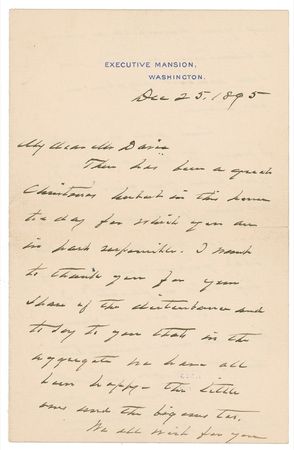 EXECUTIVE MANSION,
WASHINGTON.
Dec 25, 1895
My dear Mr Davis
There has been a great
Christmas in this house
to day for which you are
in part responsible. I want
to thank you for your
share of the disturbance and
to say to you that in the
aggregate we have all
been happy – the little
ones and the big ones too.
We all wish for you